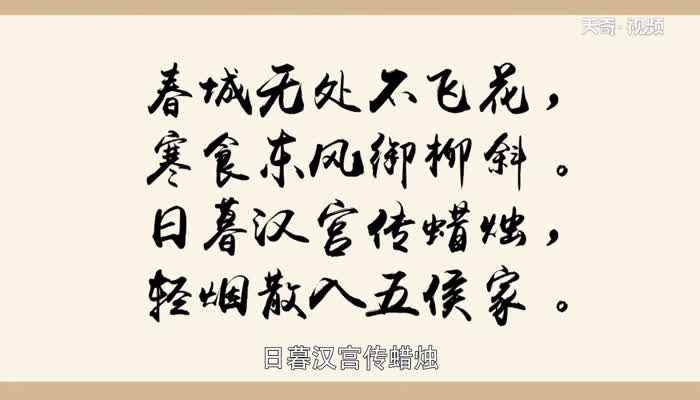 天奇·视频
春城无处不飞花，
寒食东风御柳斜。
日暮汉宫传蜡烛，
轻烟散入五侯家。
日暮汉宫传蜡烛